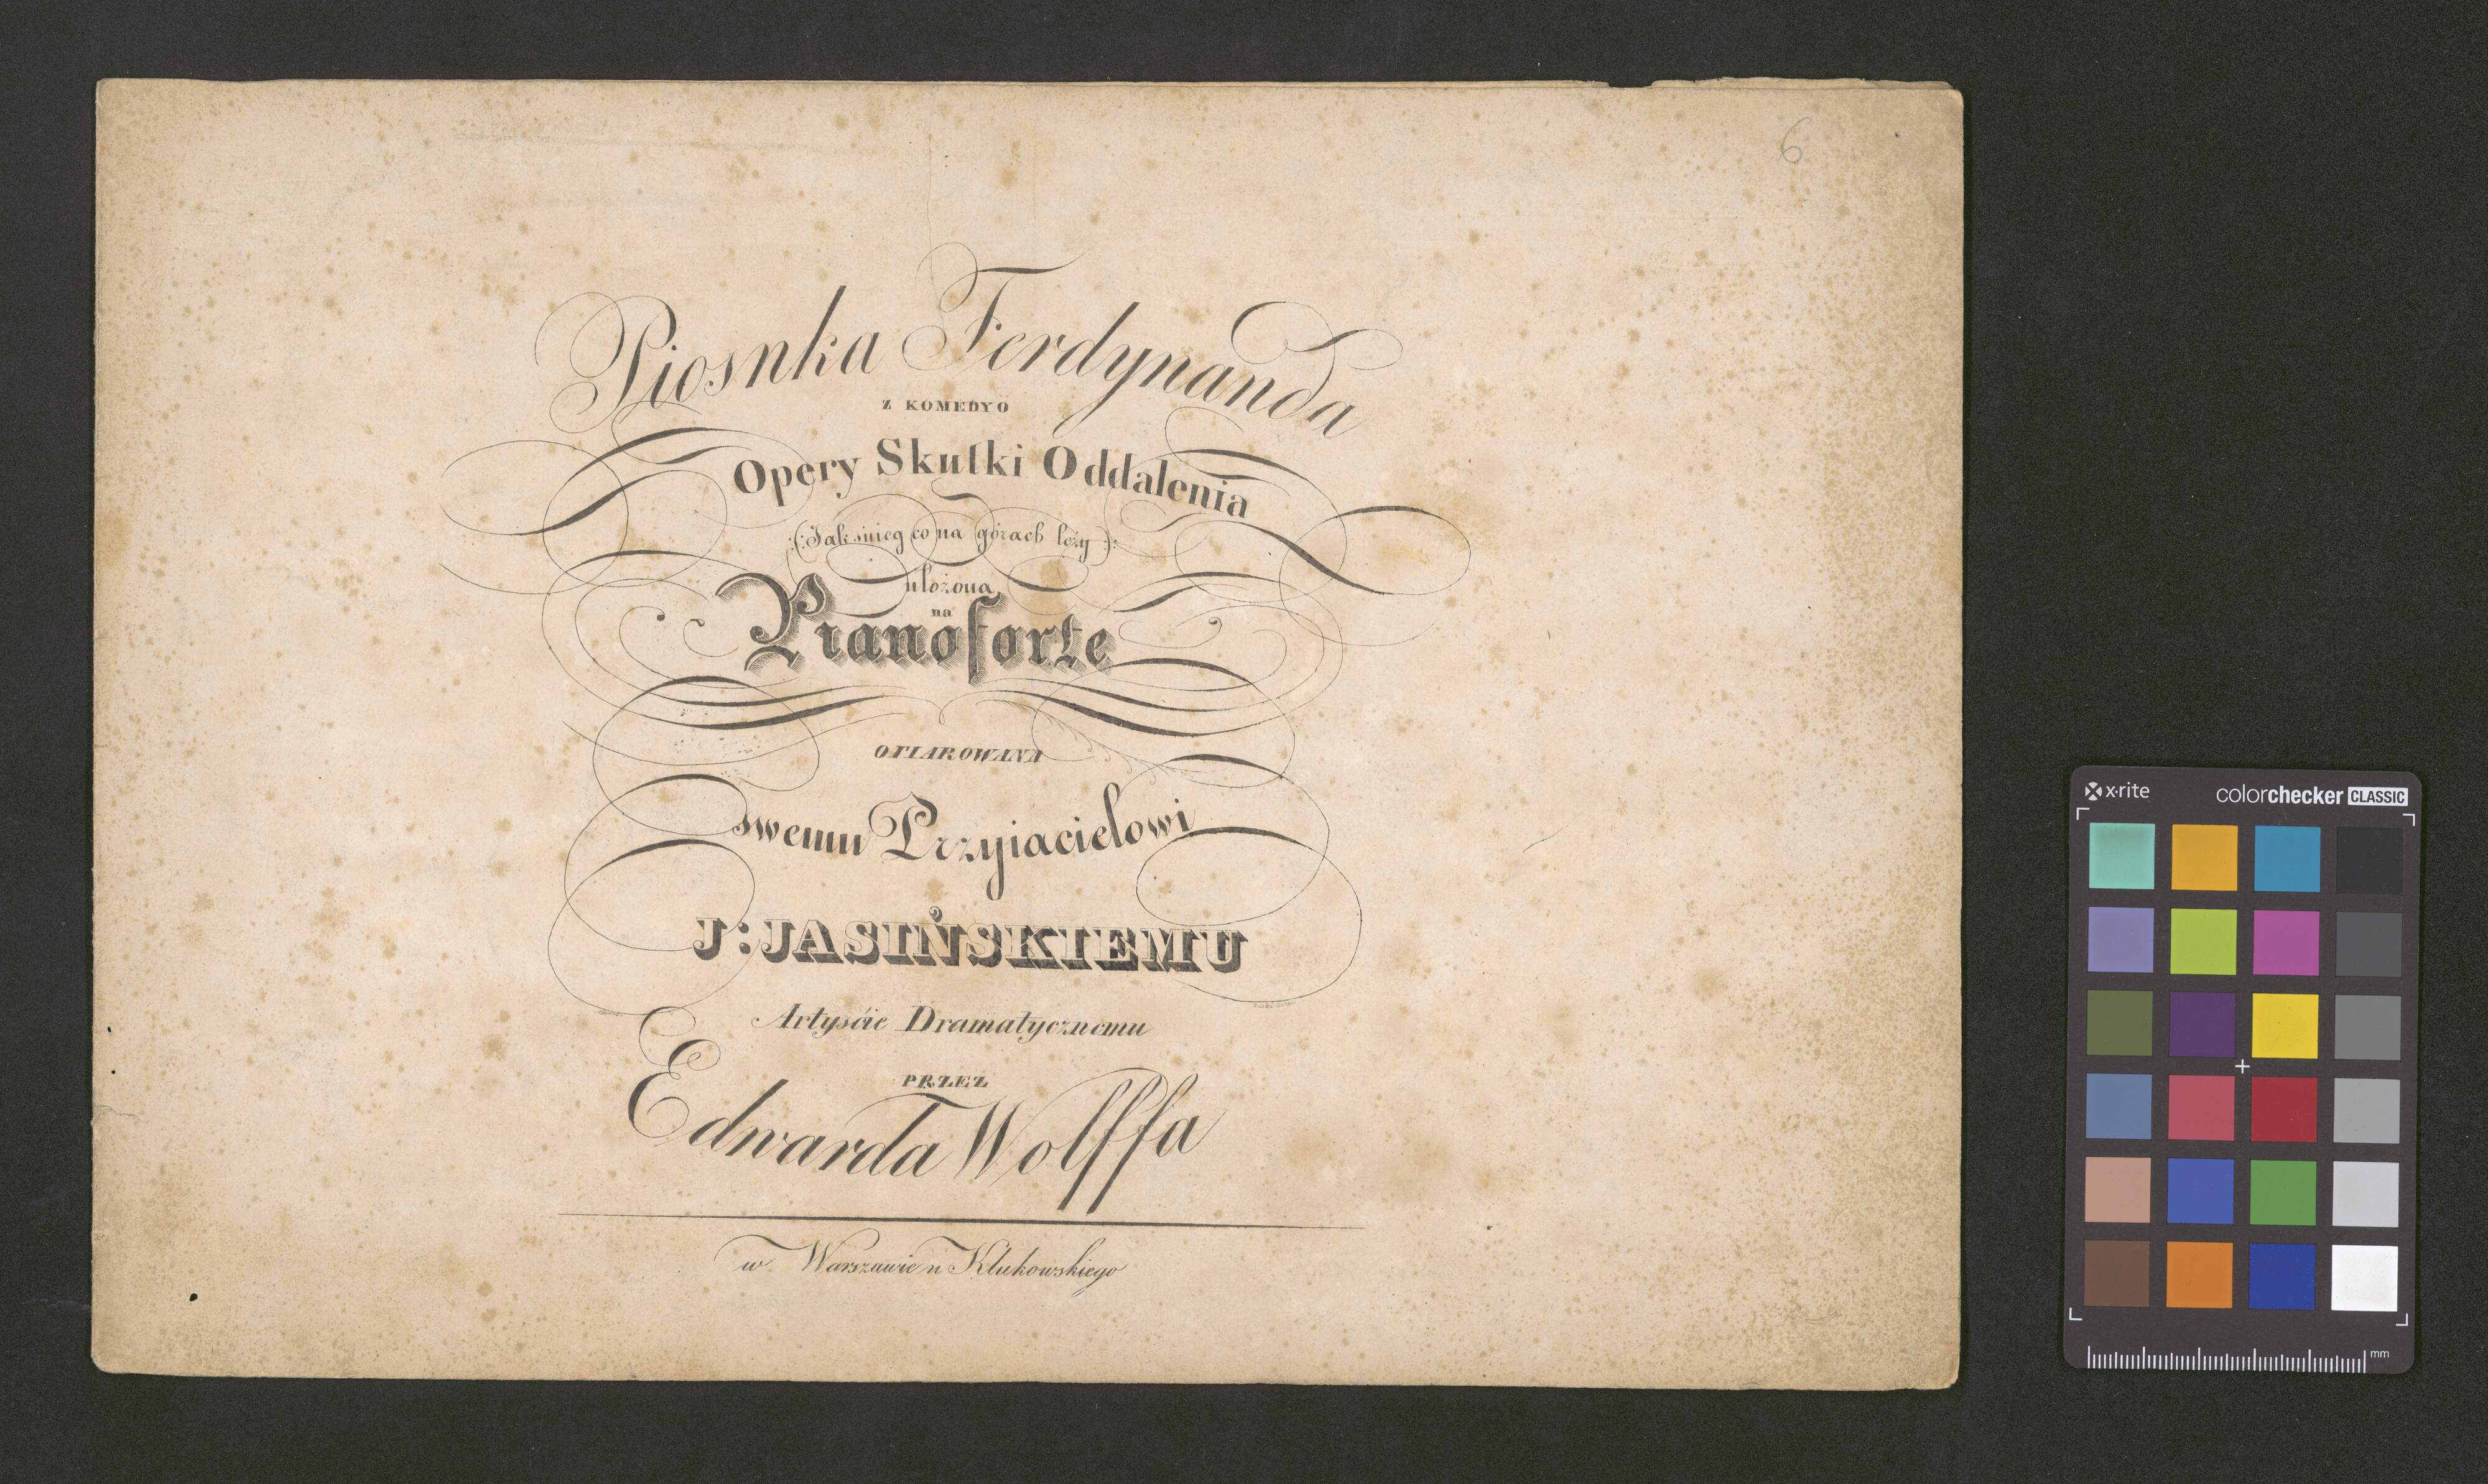 6
Piosnka Ferdynanda
Z KOMEDYO
Opery Skutki Oddalenia
(:Jak snieg co na górach leży:)
ułożona
na
Pianoforte
OFIAROWANA
swemu Przyiacielowi
J: JASIŃSKIEMU
Artyście Dramatycznemu
PRZEZ
Edwarda Wolffa
w Warszawie u Klukowskiego
x-rite
colorchecker CLASSIC
mm